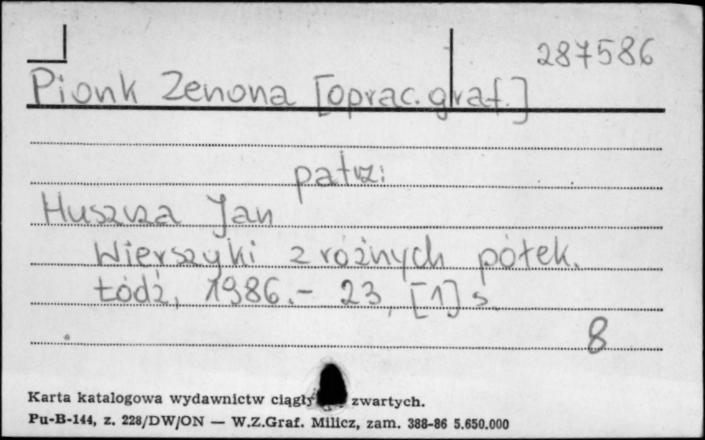 287586
Pionk Zenona [oprac. graf.]
patrz:
Huszcza Jan
Wierszyki z różnych półek.
Łódź, 1986. - 23, [1] s.
8
Karta katalogowa wydawnictw zwartych.
Pu-B-144, z. 228/DW/ON — W.Z.Graf. Milicz, zam. 388-86 5.650.000